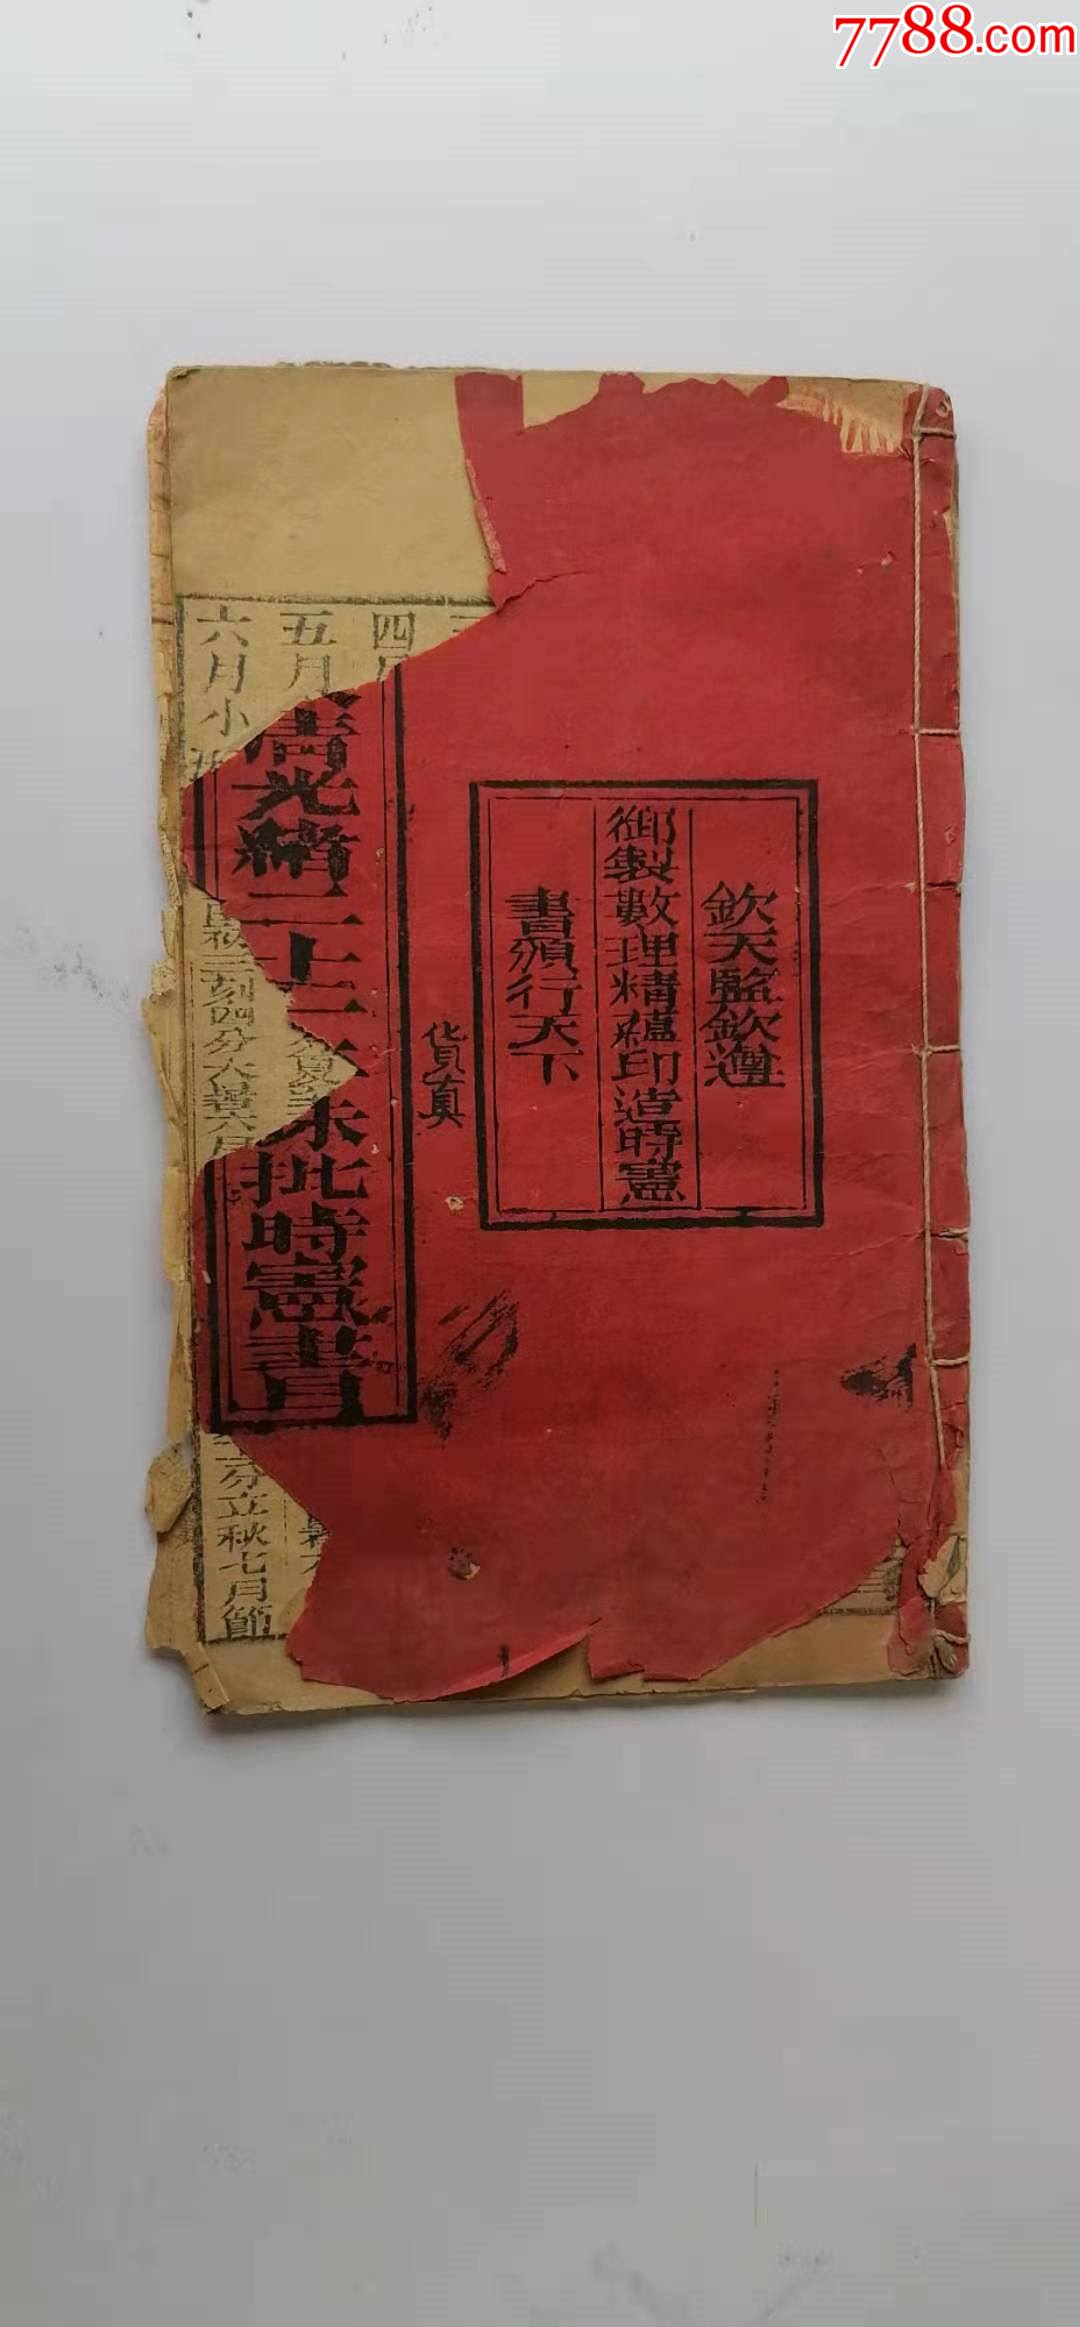 7788.com
欽天監欽遵
御製數理精蘊印造時憲
書頒行天下
貨真
清光緒二十
硃批時憲書
四月
五月
六月小
刻四分大暑六月
分立秋七月節